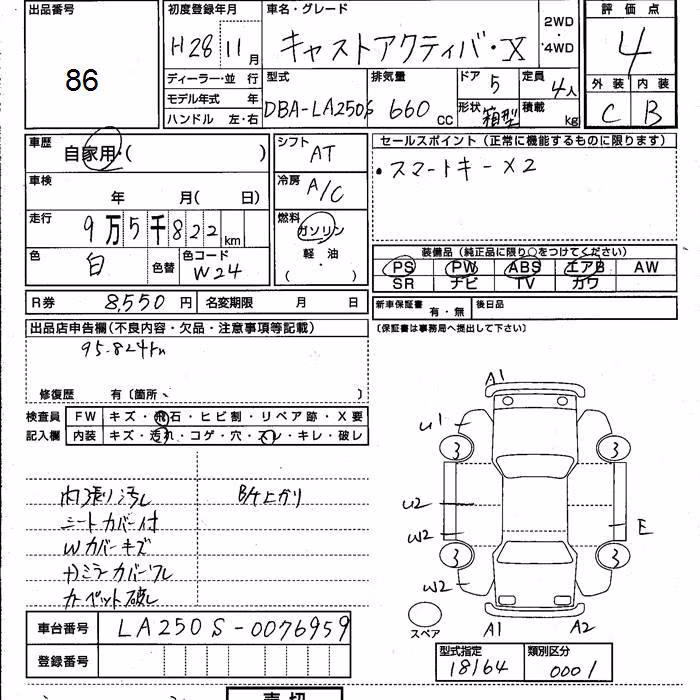 出品番号
86
初度登録年月
H28 11月
車名・グレード
キャストアクティバ・X
2WD
・4WD
評価点
4
外装 内装
C B
ディーラー・並行
モデル年式 年
ハンドル 左・右
型式
DBA-LA250S
排気量
660 cc
ドア
5
形状
箱型
定員
4人
積載
kg
車歴
自家用・( )
シフト
AT
車検
年 月( 日)
冷房
A/C
走行
9万5千822km
燃料
ガソリン
軽・油
( )
色
白
色替
色コード
W24
R券 8,550円
名変期限 月 日
セールスポイント(正常に機能するものに限ります)
・スマートキー×2
装備品(純正品に限り○をつけてください)
PS PW ABS エアB AW
SR ナビ TV カワ
新車保証書 有・無 後日品
〔保証書は事務局へ提出して下さい〕
出品店申告欄(不良内容・欠品・注意事項等記載)
95.824km
修復歴 有〔箇所、 〕
検査員
記入欄
FW キズ・飛石・ヒビ割・リペア跡・X要
内装 キズ・汚れ・コゲ・穴・スレ・キレ・破レ
内張り汚レ
B/ｻ上がり
シートカバー付
Wカバーキズ
カーペット破レ
A1
U1
3 3
U2
W2 E
3 3
W2
スペア
A1 A2
車台番号 LA250S-0076959
登録番号
型式指定 類別区分
18164 0001